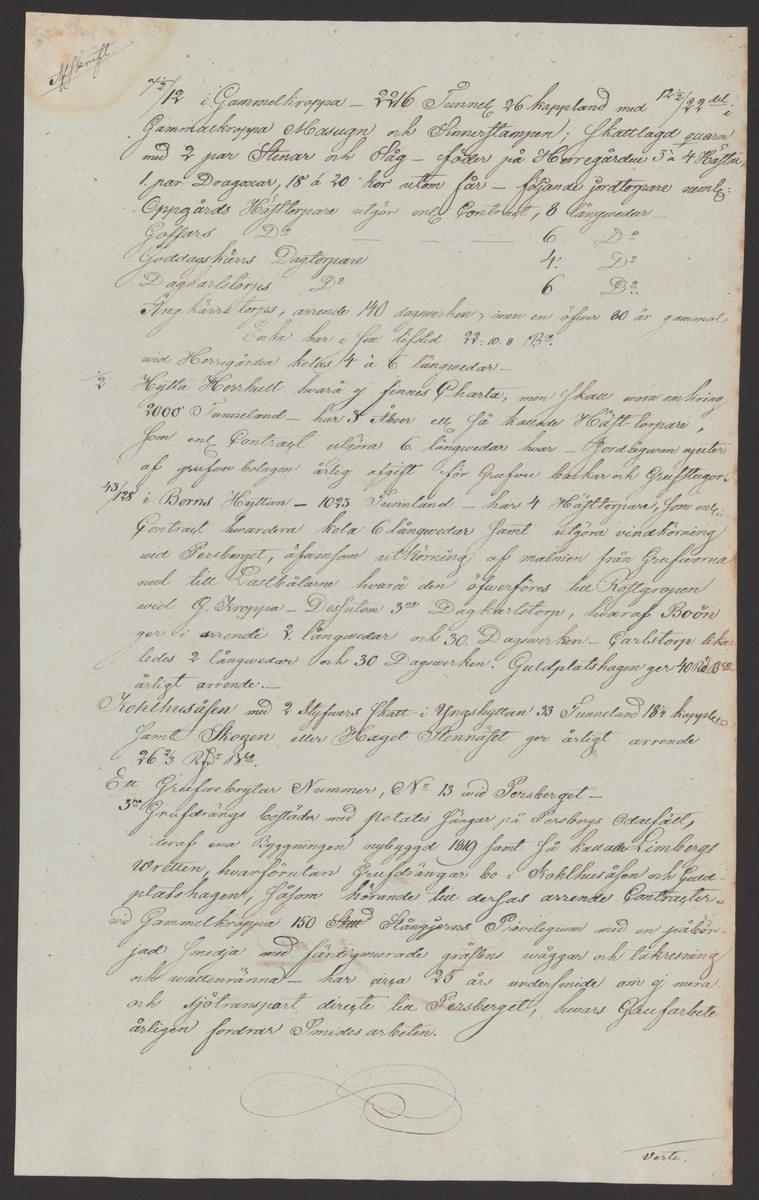 Afskrift.
7½/12 i Gammelkroppa – 2216 Tunnel. 26 kappland med 12½/22 del i
Gammalkroppa Masugn och Sinnerstampen; Skattlagd quarn
med 2 par Stenar och Såg – föder på Herregården 3 à 4 Hästar,
1. par Dragoxar, 18 à 20 kor utom får – följande jordtorpare neml:
Oppgårds Hästtorpare utgör enl. Contract, 8 långwedar –
Goffars Do — — — 6 Do
Göddagskärrs Dagtorpare 4. Do
Dagkarlstorps Do 6 Do.
Ängkärrs torps, arrende 140 dagswerken, men en öfwer 80 år gammal
Enka har i sin lifstid 22:10.8 Bo.
wid Herregården kolas 4 à 6 långwedar –
½ Hytta Herrhult hvarå ej finnes Charta, men skall vara omkring
2000 Tunneland – har 3 Åboer ell. Så kallade Häst torpare,
som enl. Contract utgöra 6 långwedar hvar – Jordägaren njuter
af grufve bolagen årlig afgift för Grufve backar och Grufstugor.
43/128 i Borns Hyttan – 1023 Tunnland – har 4 Hästtorpare, som enl.
Contract hwardera kola 6 långwedar samt utgöra vindkörning
wid Persberget, äfvensom utkörning af malmen från Grufworna
ned till Lastbåtarne hvarå den öfwerföres till Rostgropen
wid G. Kroppa – Dessutom 3ne Dagkarlstorp, hvaraf Boön
ger i arrende 2 långwedar och 30. Dagswerken – Carlstorp lika-
ledes 2 långwedar och 30 Dagswerken. Guldplatshagen ger 40 Rd Bco
årligt arrende. –
Kohlhusåsen med 2 Styfvers skatt i Yngshyttan 33 Tunneland 18¼ kappl.
samt Skogen eller Haget Stennäset ger årligt arrende
26 2/3 Rd Bco.
Ett Grufwebrytar Nummer, No 13 wid Persberget –
3ne Grufdrängs bostäder med potatis sängar på Persbergs Odalfält,
deraf ena Byggningen nybyggd 1849 samt så kallade Limbergs
Wretten, hvarförutan Grufdrängar bo i Kohlhusåsen och Guld-
platshagen, såsom hörande till dessas arrende Contracter.
wid Gammelkroppa 150 Skd Stångjerns Privilegium med en påbör-
jad smedja med färdigmurade gråstens wäggar och takresning
och wattenränna – har circa 25 års undersmide om ej mera
och sjötransport directe till Persberget, hwars Grufarbete
årligen fordrar Smidesarbeten.
Verte.